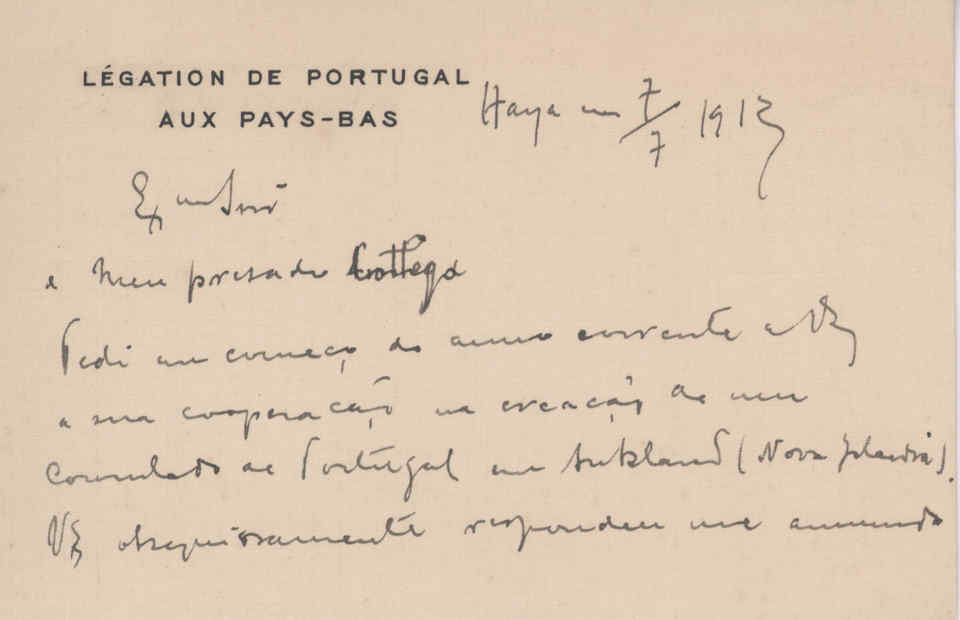 LÉGATION DE PORTUGAL
AUX PAYS-BAS
Haya em 7/7 1913
Exmo Snr
e meu presado Collega
Pedi em começo do anno corrente a VEx
a sua cooperação na creação de um
consulado de Portugal em Aukland (Nova Zelandia).
VEx obsequiosamente respondeu me annuindo